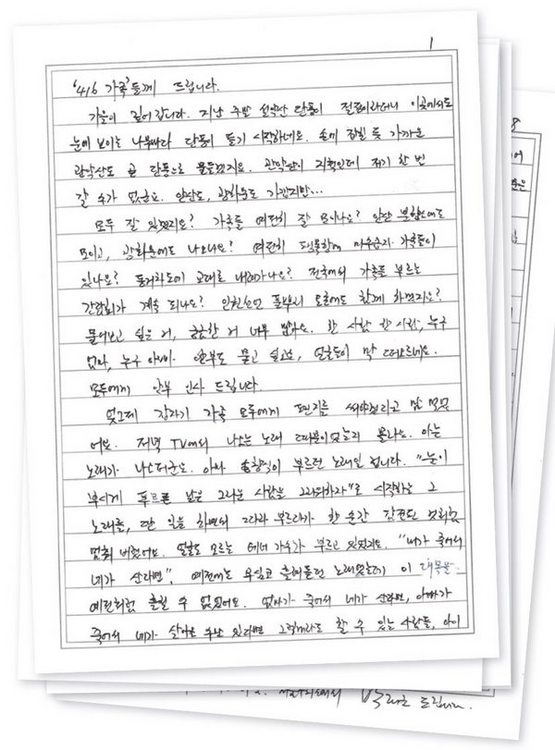 1
'416 가족'들께 드립니다.
가을이 깊어 갑니다. 지난 주말 설악산 단풍이 절정이라더니 이곳에서도
눈에 보이는 나무마다 단풍이 들기 시작하네요. 손에 잡힐 듯 가까운
관악산도 곧 단풍으로 물들겠지요. 관악산이 지척인데 저기 한 번
갈 수가 없군요. 안산도, 광화문도 가깝지만…
모두 잘 있겠지요? 가족들 여전히 잘 모이나요? 안산 분향소에도
모이고, 광화문에도 나오나요? 여전히 팽목항에 미수습자 가족들이
있나요? 동거차도에 교대로 내려가나요? 전국에서 가족을 부르는
간담회가 계속 되나요? 인권선언 풀뿌리 토론에도 함께 하겠지요?
물어보고 싶은 거, 궁금한 거 너무 많아요. 한 사람 한 사람, 누구
엄마, 누구 아빠. 안부도 묻고 싶고요, 얼굴들이 막 떠오르네요.
모두에게 안부 인사 드립니다.
엊그제 갑자기 가족 모두에게 편지를 써야겠다고 맘 먹었
어요. 저녁 TV에서 나오는 노래 때문이었는지 몰라요. 아는
노래가 나오더군요. 아마 송창식이 부르던 노래일 겁니다. "눈이
부시게 푸르른 날은 그리운 사람을 그리워하자"로 시작하는 그
노래를, 딴 일을 하면서 따라 부르다가 한 순간 감전된 것처럼
멈춰 버렸어요. 얼굴도 모르는 테너 가수가 부르고 있었지요. "내가 죽어서
네가 산다면", 예전에는 무심코 흥얼대던 노래였는데 이 대목을
예전처럼 흘릴 수 없었어요. 엄마가 죽어서 네가 산다면, 아빠가
죽어서 네가 살아올 수만 있다면 그렇게라도 할 수 있는 사람들, 아이
드립니다.